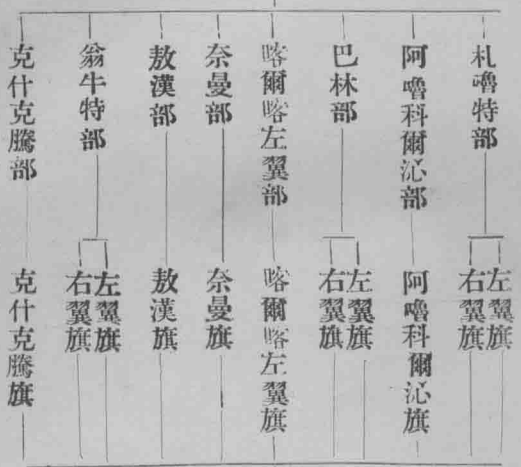 札嚕特部
左翼旗
右翼旗
阿嚕科爾沁部
阿嚕科爾沁旗
巴林部
左翼旗
右翼旗
喀爾喀左翼部
喀爾喀左翼旗
奈曼部
奈曼旗
敖漢部
敖漢旗
翁牛特部
左翼旗
右翼旗
克什克騰部
克什克騰旗